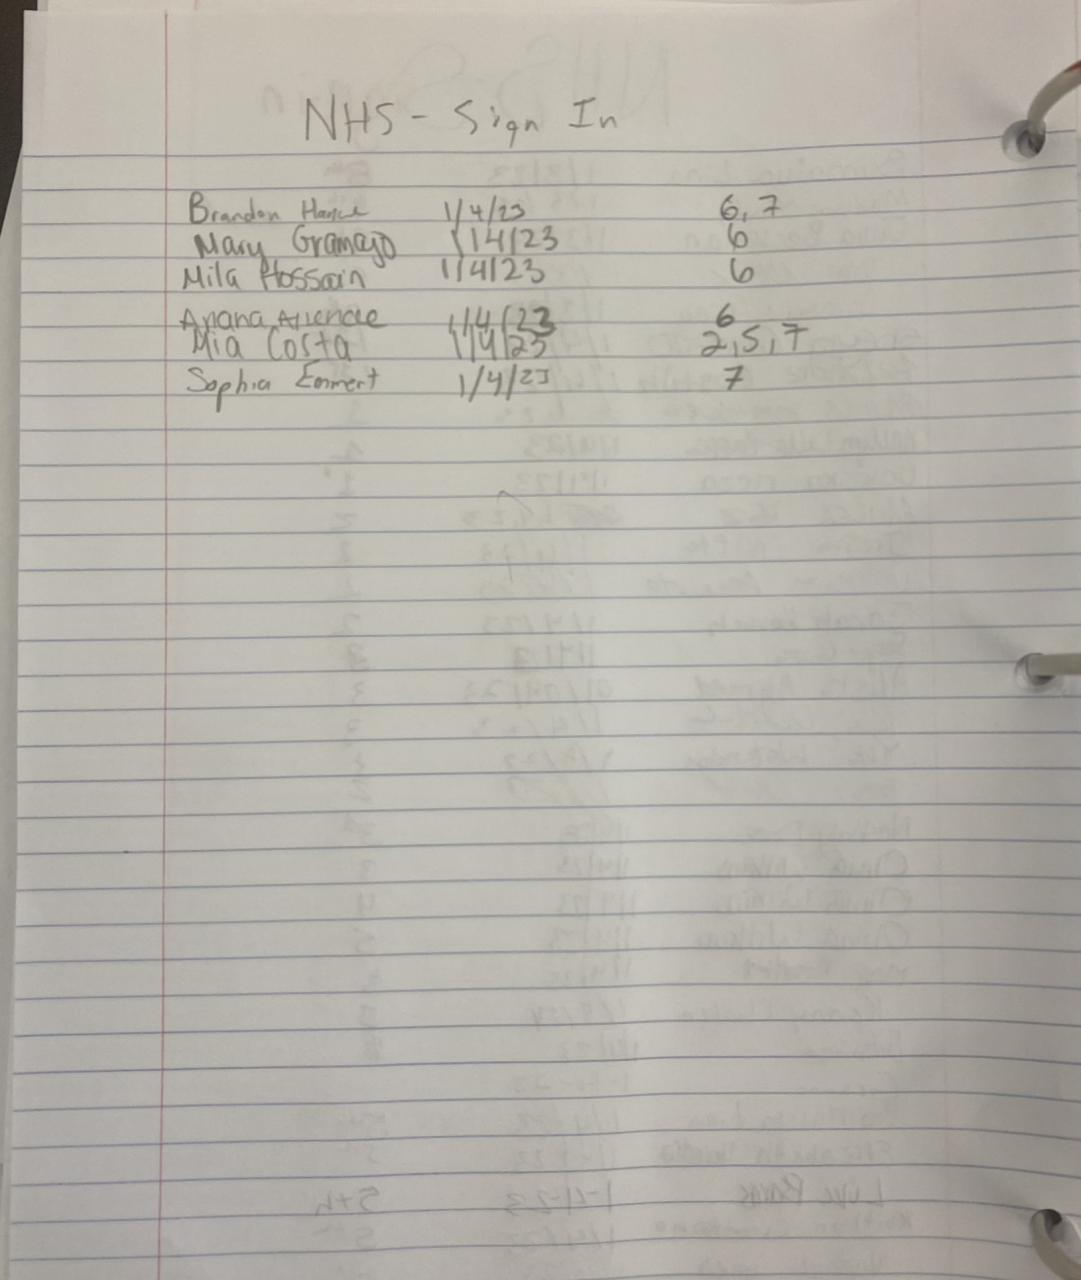 NHS - Sign In
Brandon 1/4/23 6, 7
Mary Gramajo 1/4/23 6
Mila Hossain 1/4/23 6
Ariana Allende 1/4/23 6
Mia Costa 1/4/23 2, 5, 7
Sophia Emmert 1/4/23 7